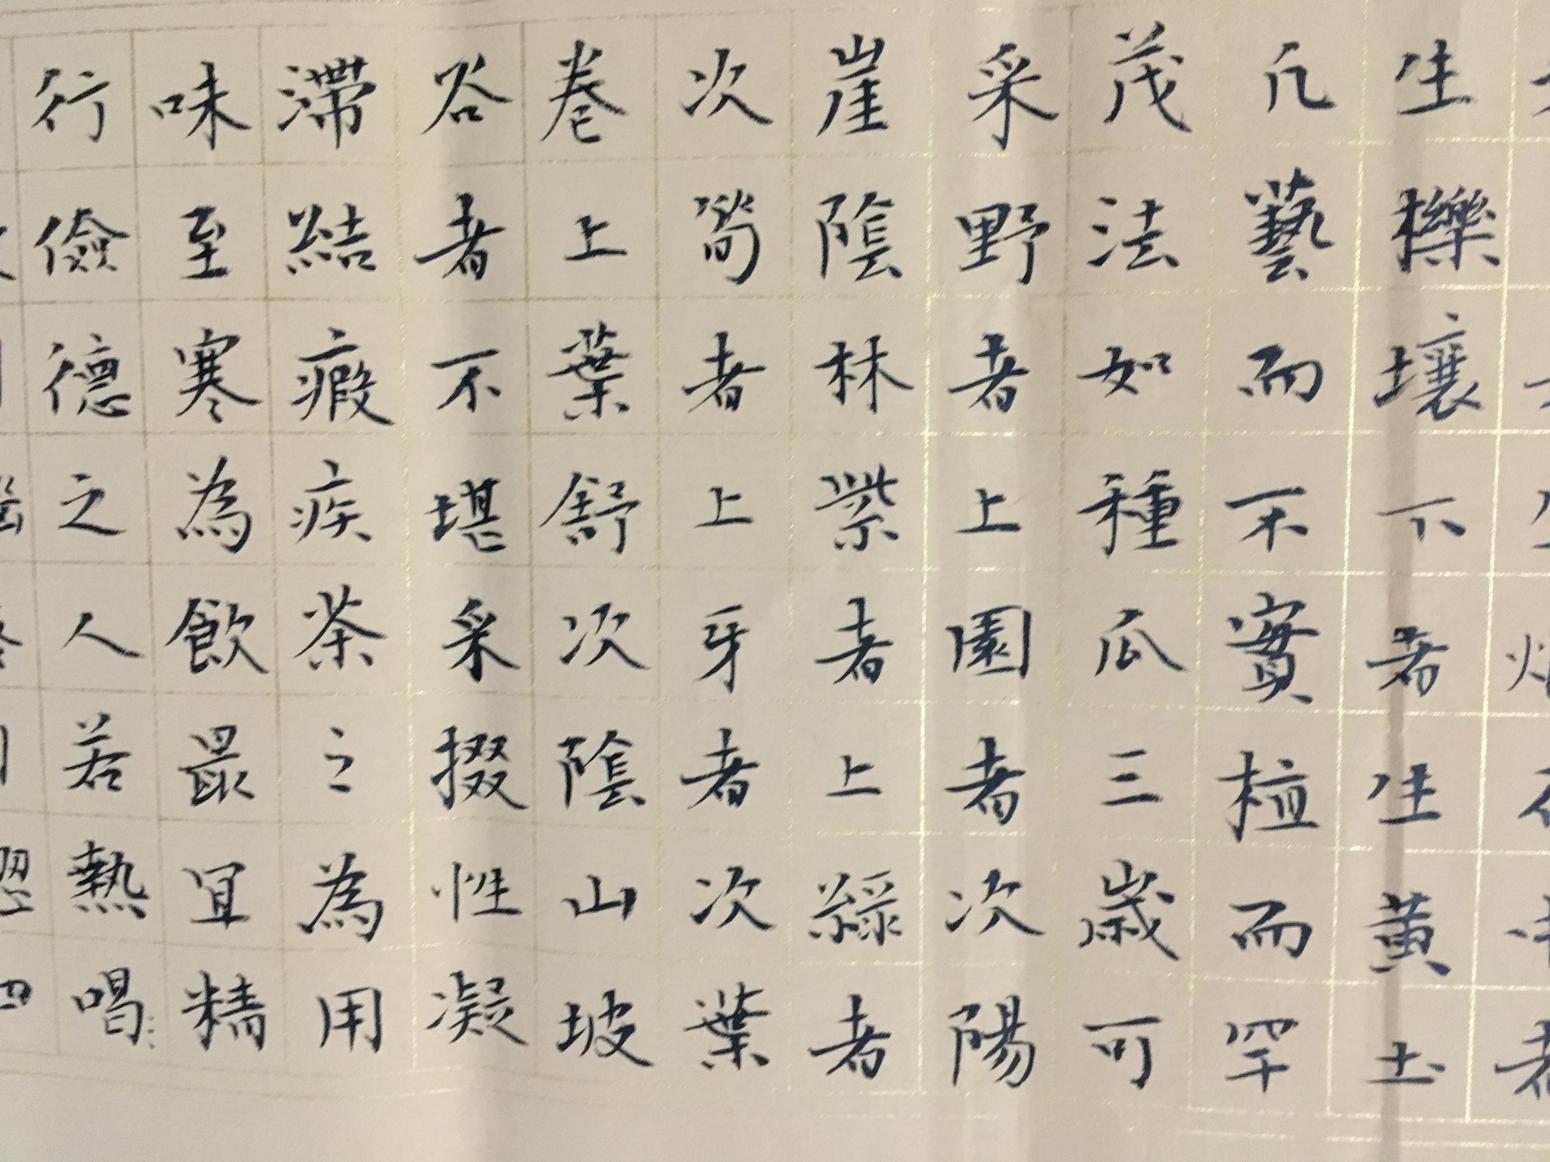 生櫟壤下者生黄土
凡藝而不實植而罕
茂法如種瓜三歲可
采野者上園者次陽
崖陰林紫者上綠者
次筍者上牙者次葉
卷上葉舒次陰山坡
谷者不堪采掇性凝
滯結瘕疾茶之為用
味至寒為飲最宜精
行儉德之人若熱喝